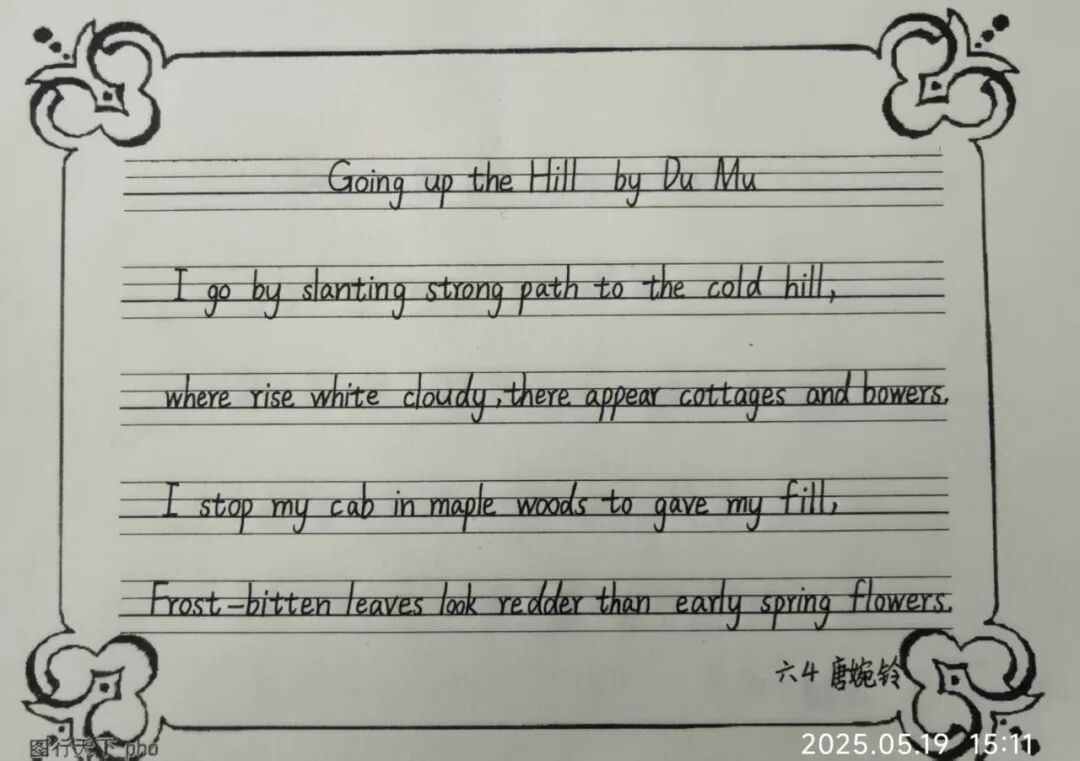 Going up the Hill by Du Mu
I go by slanting strong path to the cold hill,
where rise white cloudy, there appear cottages and bowers.
I stop my cab in maple woods to gave my fill,
Frost-bitten leaves look redder than early spring flowers.
六4 唐婉铃
图行天下 pho
2025.05.19 15:11